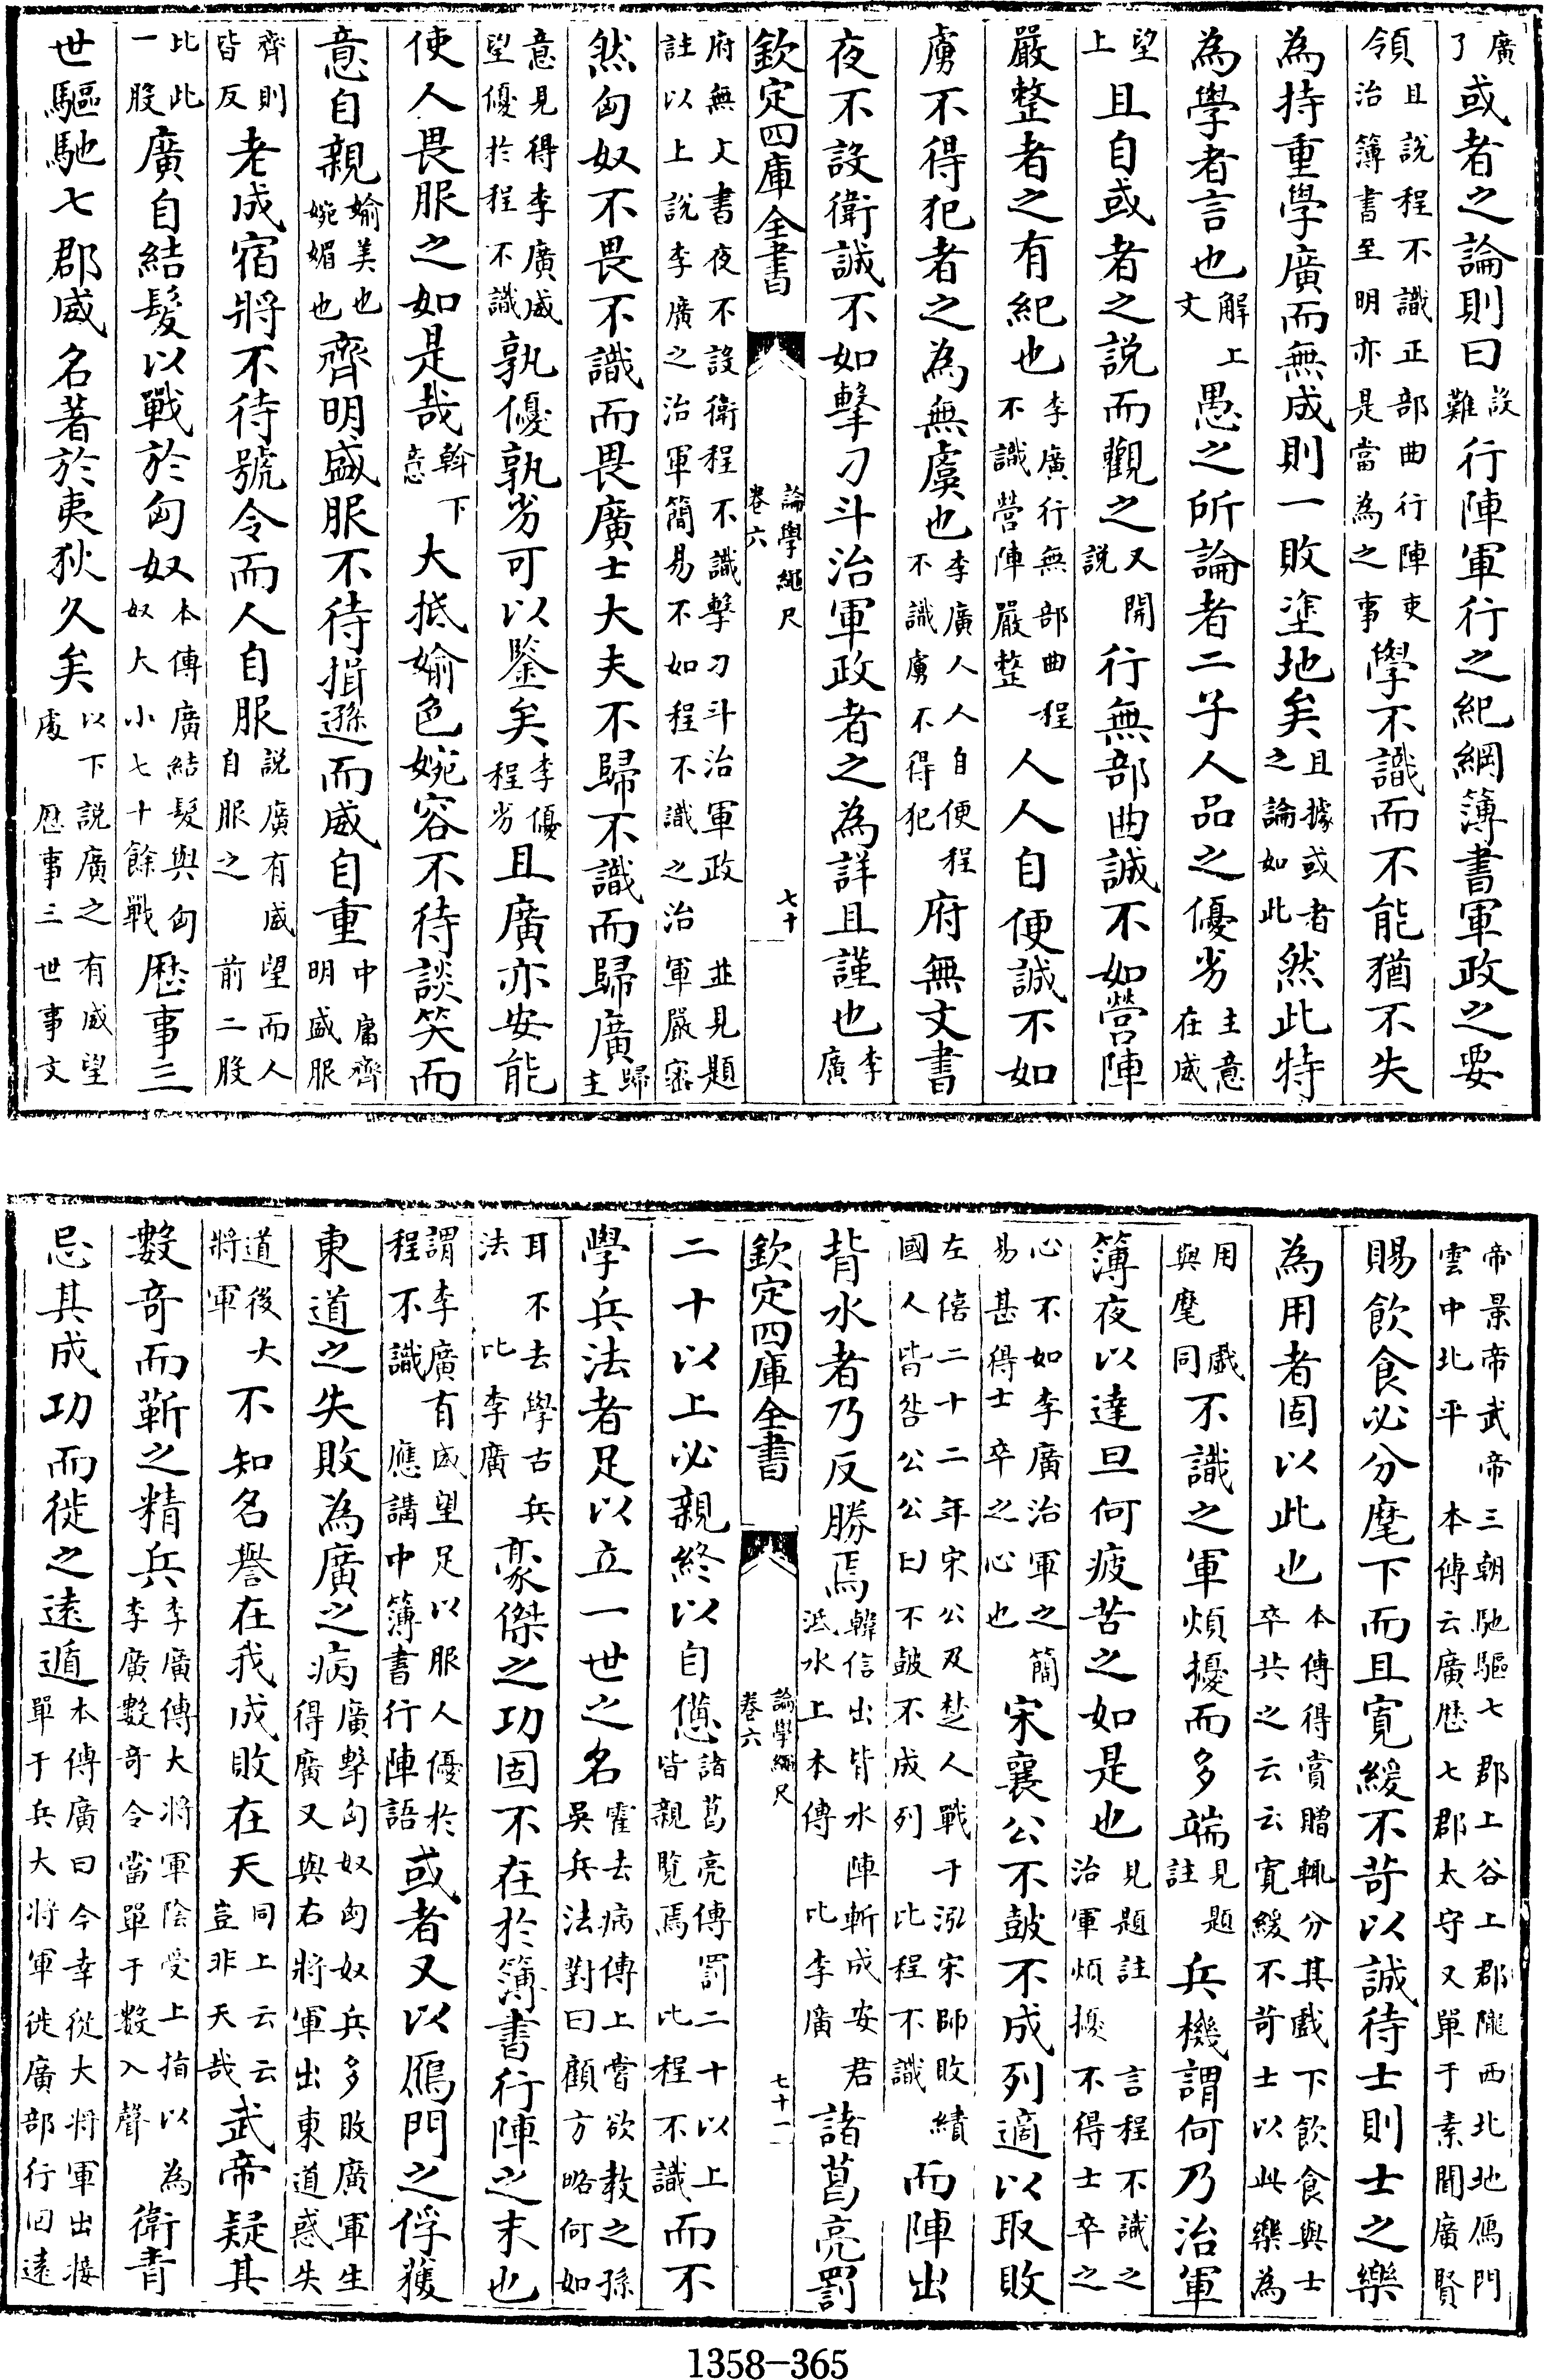 廣了或者之論則曰設難行陣軍行之紀綱簿書軍政之要
領且說程不識正部曲行陣吏治簿書至明亦是當為之事學不識而不能猶不失
為持重學廣而無成則一敗塗地矣且據或者之論如此然此特
為學者言也解上文愚之所論者二子人品之優劣主意在威
望上且自或者之說而觀之又開說行無部曲誠不如營陣
嚴整者之有紀也李廣行無部曲程不識營陣嚴整人人自便誠不如
虜不得犯者之為無虞也李廣人人自便程不識虜不得犯府無文書
夜不設衛誠不如擊刁斗治軍政者之為詳且謹也李廣
欽定四庫全書 論學繩尺 卷六 七十
府無文書夜不設衛程不識擊刁斗治軍政並見題註以上說李廣之治軍簡易不如程不識之治軍嚴密
然匈奴不畏不識而畏廣士大夫不歸不識而歸廣歸主
意見得李廣威望優於程不識孰優孰劣可以鑒矣李優程劣且廣亦安能
使人畏服之如是哉斡下意大抵媮色婉容不待談笑而
意自親媮美也婉媚也齊明盛服不待揖遜而威自重中庸齊明盛服
齊則皆反老成宿將不待號令而人自服說廣有威望而人自服之前二股
比此一股廣自結髮以戰於匈奴本傳廣結髮與匈奴大小七十餘戰歷事三
世驅馳七郡威名著於夷狄久矣以下說廣之有威望處歷事三世事文
帝景帝武帝三朝馳驅七郡上谷上郡隴西北地鴈門雲中北平本傳云廣歷七郡太守又單于素聞廣賢
賜飲食必分麾下而且寬緩不苛以誠待士則士之樂
為用者固以此也本傳得賞贈輒分其戲下飲食與士卒共之云云寬緩不苛士以此樂為
用戲與麾同不識之軍煩擾而多端見題註兵機謂何乃治軍
簿夜以達旦何疲苦之如是也見題註治軍煩擾言程不識之不得士卒之
心不如李廣治軍之簡易甚得士卒之心也宋襄公不鼓不成列適以取敗
左僖二十二年宋公及楚人戰于泓宋師敗績國人皆咎公公曰不鼓不成列比程不識而陣出
背水者乃反勝焉韓信出背水陣斬成安君泜水上本傳比李廣諸葛亮罰
欽定四庫全書 論學繩尺 卷六 七十一
二十以上必親終以自憊諸葛亮傳罰二十以上皆親覽焉比程不識而不
學兵法者足以立一世之名霍去病傳上嘗欲教之孫吳兵法對曰顧方略何如
耳不去學古兵法比李廣豪傑之功固不在於簿書行陣之末也
謂李廣有威望足以服人優於程不識應講中簿書行陣語或者又以鴈門之俘獲
東道之失敗為廣之病廣擊匈奴匈奴兵多敗廣軍生得廣又與右將軍出東道惑失
道後大將軍不知名譽在我成敗在天同上云云豈非天哉武帝疑其
數奇而靳之精兵李廣傳大將軍陰受上指以為李廣數奇令當單于數入聲衛青
忌其成功而徙之遠遁本傳廣曰今幸從大將軍出接單于兵大將軍徙廣部行回遠
1358-365